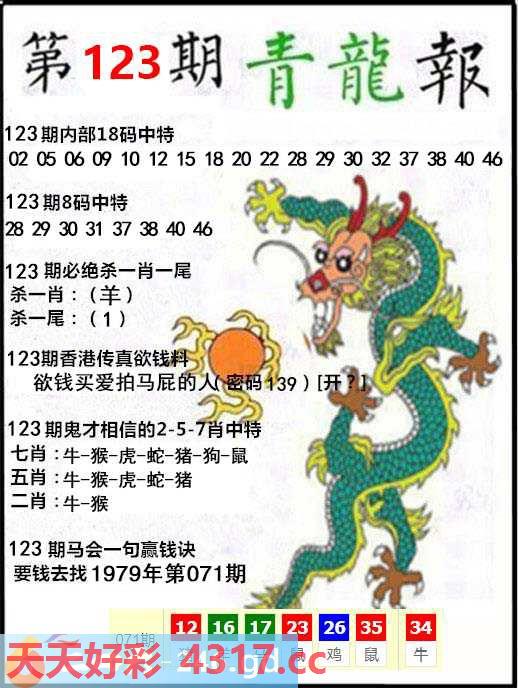 第123期青龍報
123期内部18码中特
02 05 06 09 10 12 15 18 20 22 28 29 30 32 37 38 40 46
123期8码中特
28 29 30 31 37 38 40 46
123期必绝杀一肖一尾
杀一肖：（羊）
杀一尾：（1）
123期香港传真欲钱料
欲钱买爱拍马屁的人（密码139）[开？]
123期鬼才相信的2-5-7肖中特
七肖：牛-猴-虎-蛇-猪-狗-鼠
五肖：牛-猴-虎-蛇-猪
二肖：牛-猴
123期马会一句赢钱诀
要钱去找1979年第071期
071期 12 16 17 23 26 35 34
鼠 鸡 鼠 牛
天天好彩 4317.cc